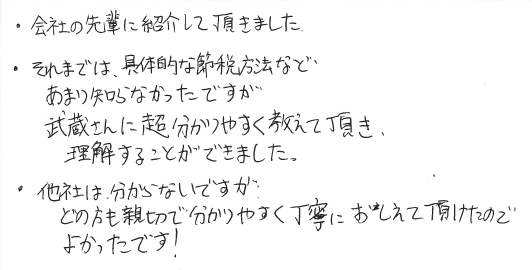 ・会社の先輩に紹介して頂きました.
・それまでは、具体的な節税方法など
あまり知らなかったですが
武蔵さんに超分かりやすく教えて頂き、
理解することができました。
・他社は分からないですが
どの方も親切で分かりやすく丁寧におしえて頂けたので
よかったです!